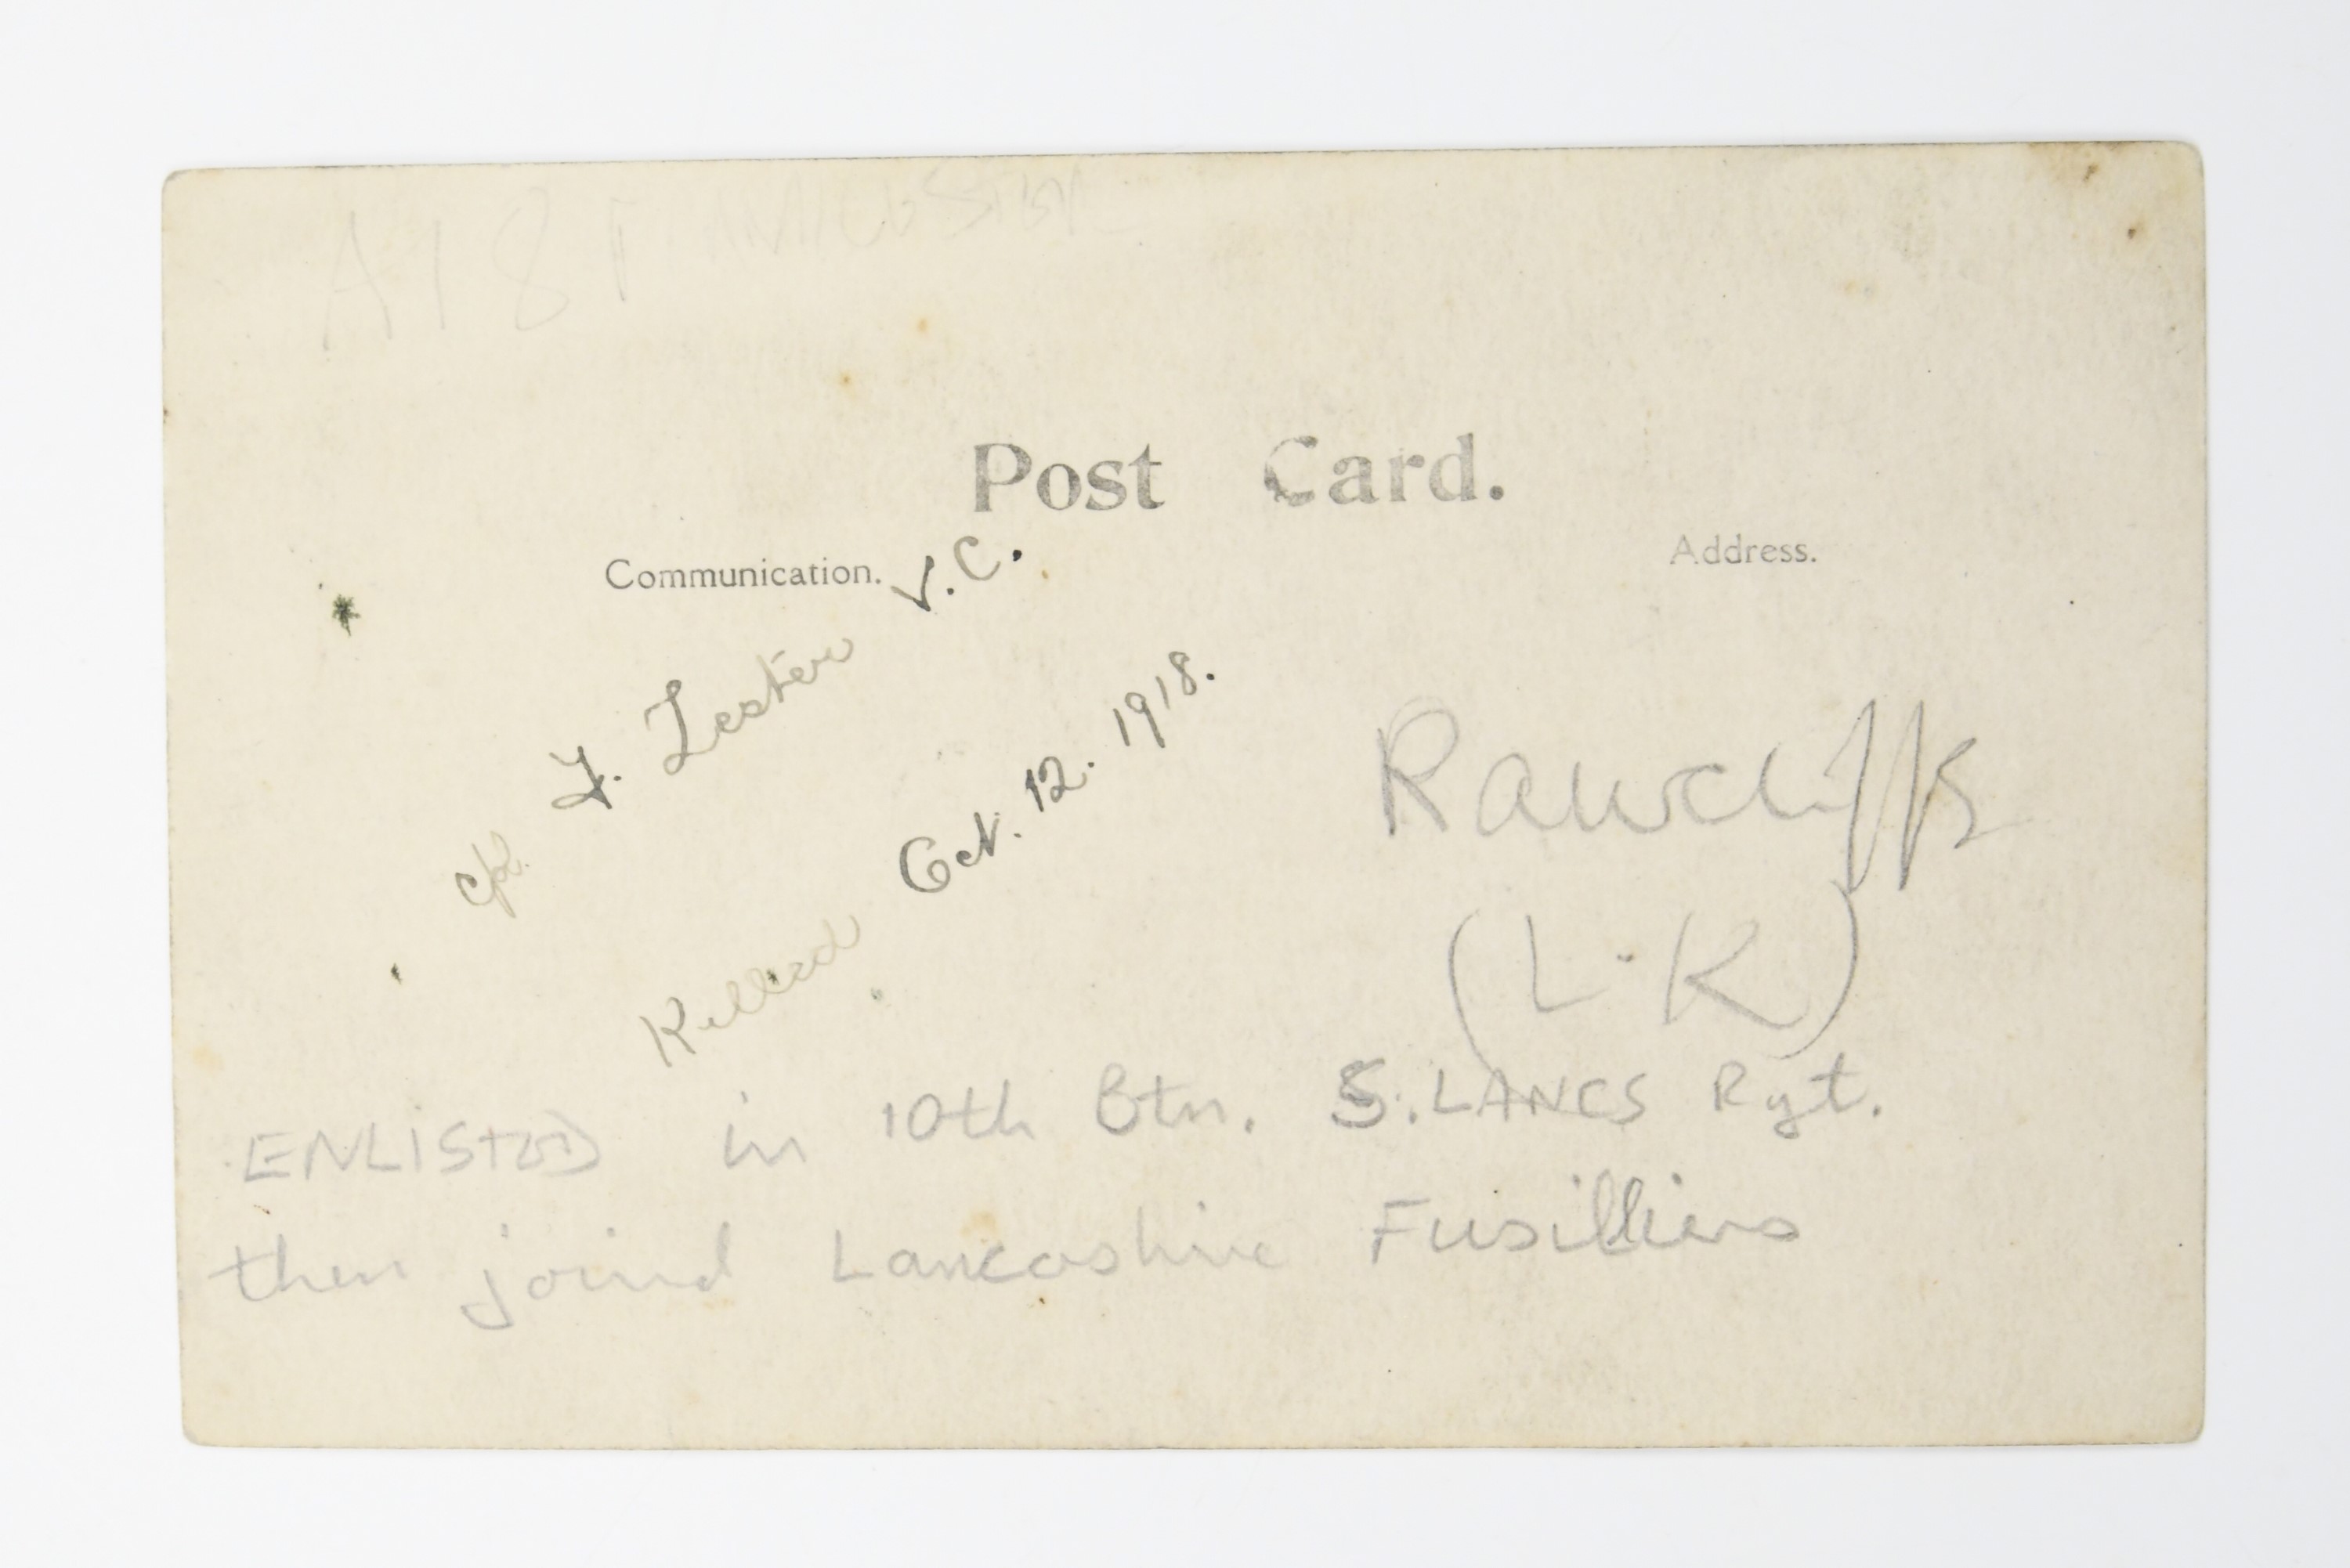 A18
Post Card.
Communication.
Address.
Cpl. F. Lester V.C.
Killed Oct. 12. 1918.
Rawcliffe
(L.K)
ENLISTED in 10th Btn. S. LANCS Rgt.
then joined Lancashire Fusilliers